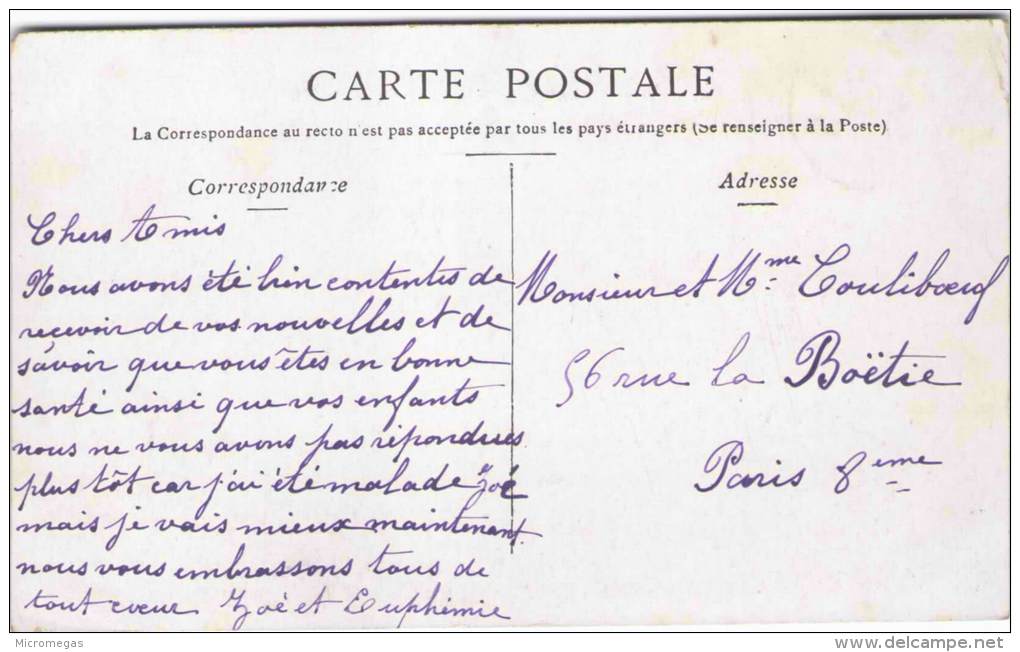 CARTE POSTALE
La Correspondance au recto n'est pas acceptée par tous les pays étrangers (Se renseigner à la Poste)
Correspondance
Chers Amis
Nous avons été bien contentes de
reçevoir de vos nouvelles et de
savoir que vous êtes en bonne
santé ainsi que vos enfants
nous ne vous avons pas répondues
plus tôt car j'ai été malade Zoé
mais je vais mieux maintenant.
nous vous embrassons tous de
tout cœur Zoé et Euphémie
Adresse
Monsieur et Mme Coulibœuf
56 rue la Boëtie
Paris 8eme
Micromegas
www.delcampe.net